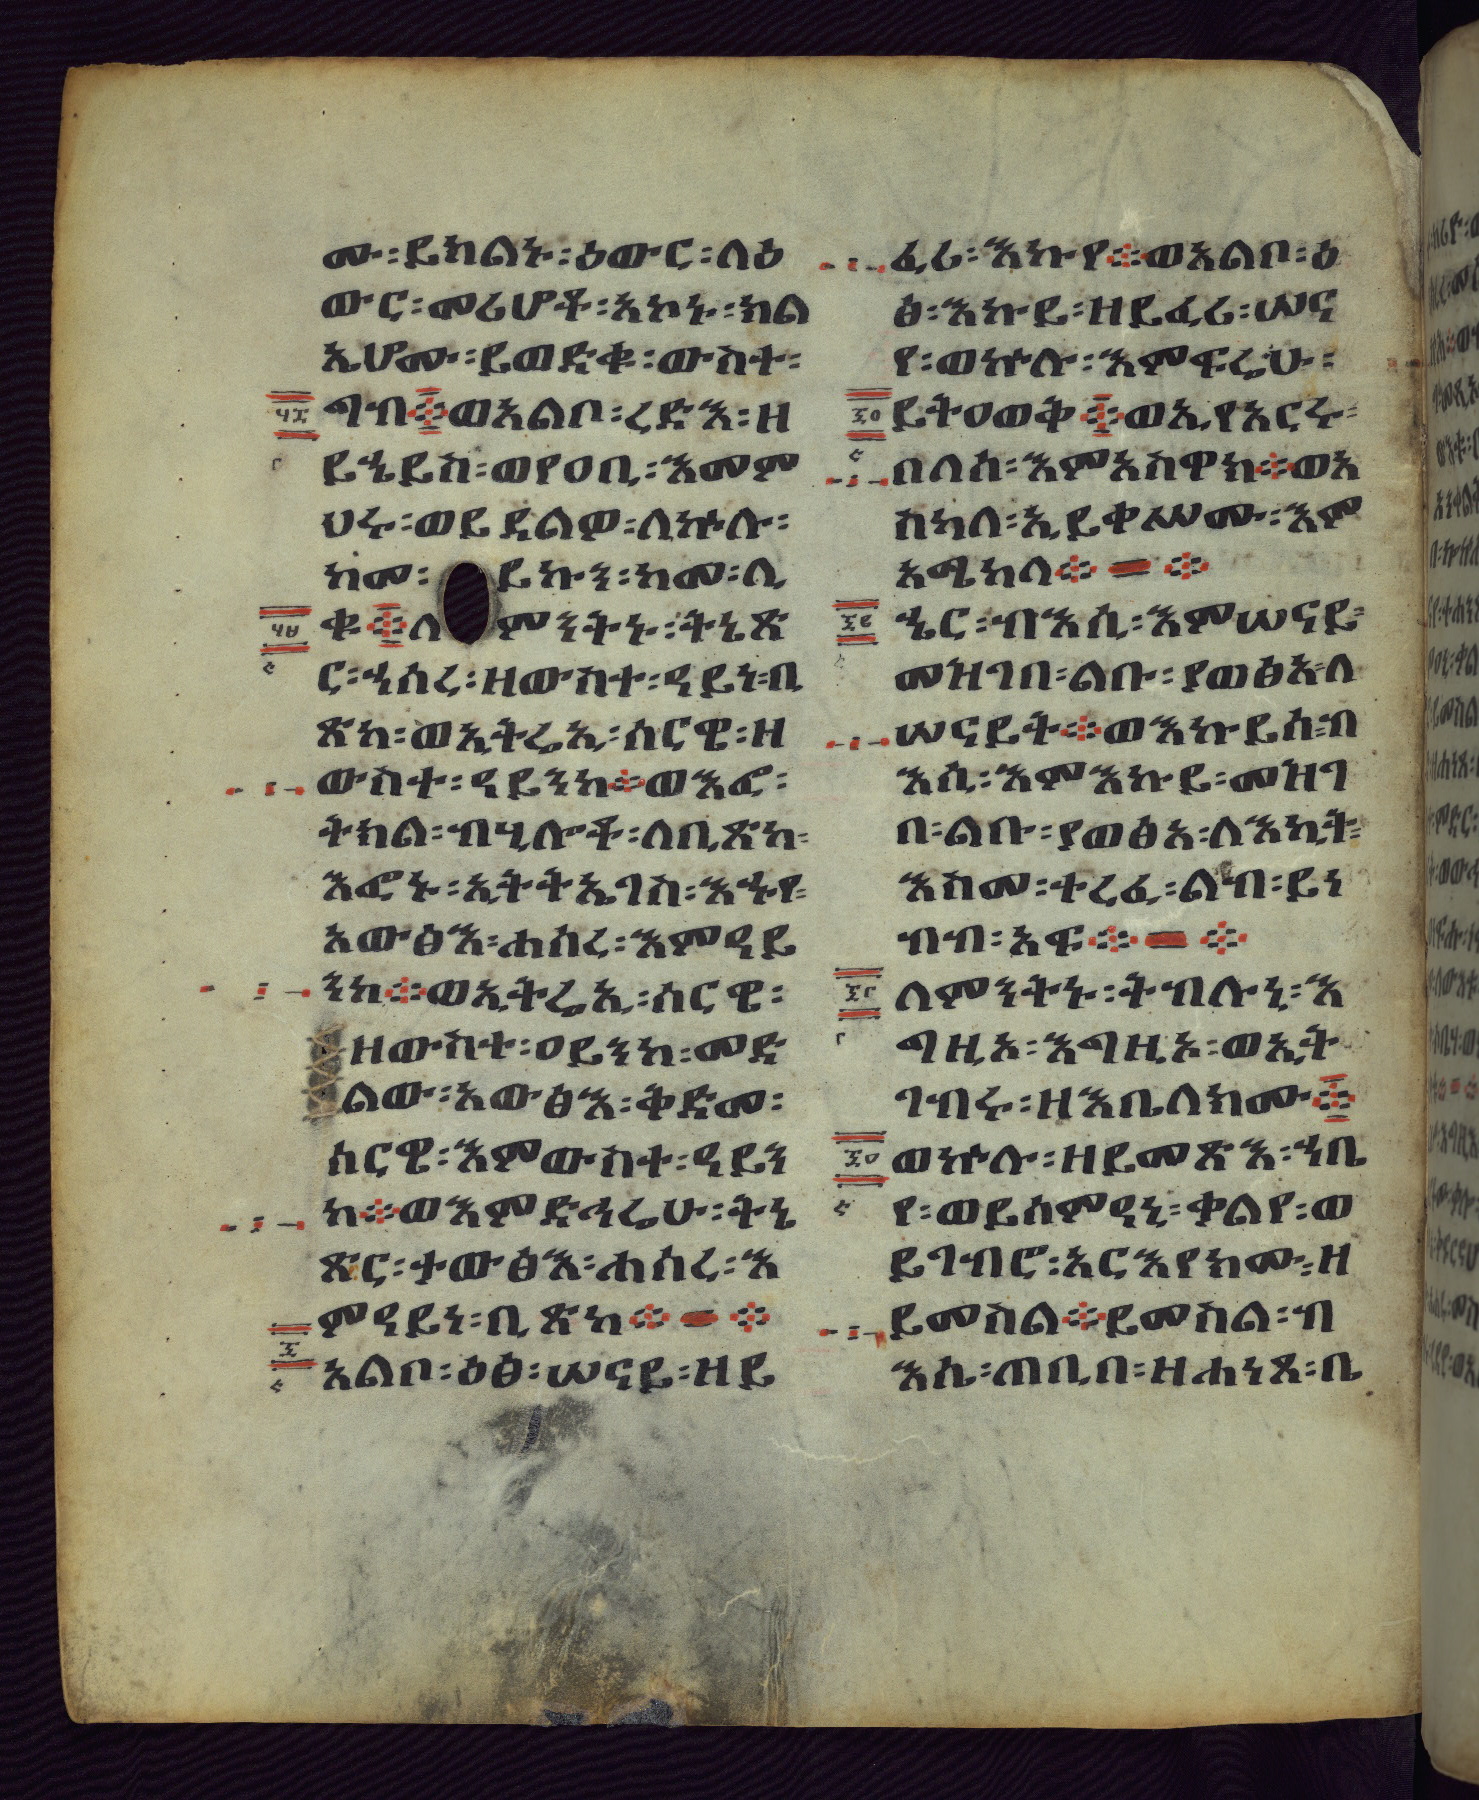 ሙ፡ይክልኑ፡ዕውር፡ለዕ
ውር፡መሪሆቶ፡አኮኑ፡ክል
ኤሆሙ፡ይወድቁ፡ውስተ፡
ግብ፨ወአልቦ፡ረድእ፡ዘ
ይኄይስ፡ወየዐቢ፡እመም
ህሩ፡ወይደልዎ፡ለኵሉ፡
ከመ፡ይኩን፡ከመ፡ሊ
ቁ፨ለምንትኑ፡ትኔጽ
ር፡ኃሠረ፡ዘውስተ፡ዓይነ፡ቢ
ጽከ፡ወኢትሬኢ፡ሰርዌ፡ዘ
ውስተ፡ዓይንከ፨ወእፎ፡
ትክል፡ብሂሎቶ፡ለቢጽከ፡
እፎኑ፡ኢትትኤገሰ፡እኁየ፡
አውፅእ፡ሐሰረ፡እምዓይ
ንከ፨ወኢትሬኢ፡ሰርዌ፡
ዘውስተ፡ዐይንከ፡መድ
ልው፡አውፅእ፡ቅድመ፡
ሰርዌ፡እምውስተ፡ዓይን
ከ፨ወእምድኅሬሁ፡ትኔ
ጽር፡ተውፅእ፡ሐሰረ፡እ
ምዓይነ፡ቢጽከ፨
አልቦ፡ዕፅ፡ሠናይ፡ዘይ
ፈሪ፡እኩየ፨ወአልቦ፡ዕ
ፅ፡እኩይ፡ዘይፈሪ፡ሠና
የ፡ወኵሉ፡እምፍሬሁ፡
ይትዐወቅ፨ወኢየአርሩ፡
በለሰ፡እምአስዋክ፨ወአ
ስካለ፡ኢይቀሥሙ፡እም
አሜከላ፨
ኄር፡ብእሲ፡እምሠናይ፡
መዝገበ፡ልቡ፡ያወፅእ፡ለ
ሠናይት፨ወእኩይሰ፡ብ
እሲ፡እምእኩይ፡መዝገ
በ፡ልቡ፡ያወፅእ፡ለእኪት፡
እስመ፡ተረፈ፡ልብ፡ይነ
ብብ፡አፍ፨
ለምንትኑ፡ትብሉኒ፡እ
ግዚኦ፡እግዚኦ፡ወኢት
ገብሩ፡ዘእቤለክሙ፨
ወኵሉ፡ዘይመጽእ፡ኀቤ
የ፡ወይሰምዓኒ፡ቃልየ፡ወ
ይገብሮ፡አርእየክሙ፡ዘ
ይመስል፨ይመስል፡ብ
እሴ፡ጠቢበ፡ዘሐነጸ፡ቤ